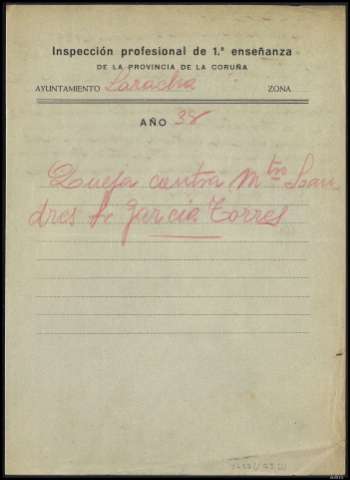 Inspección profesional de 1.ª enseñanza
DE LA PROVINCIA DE LA CORUÑA
AYUNTAMIENTO Laracha ZONA
AÑO 38
Queja contra Mtro
García Torres